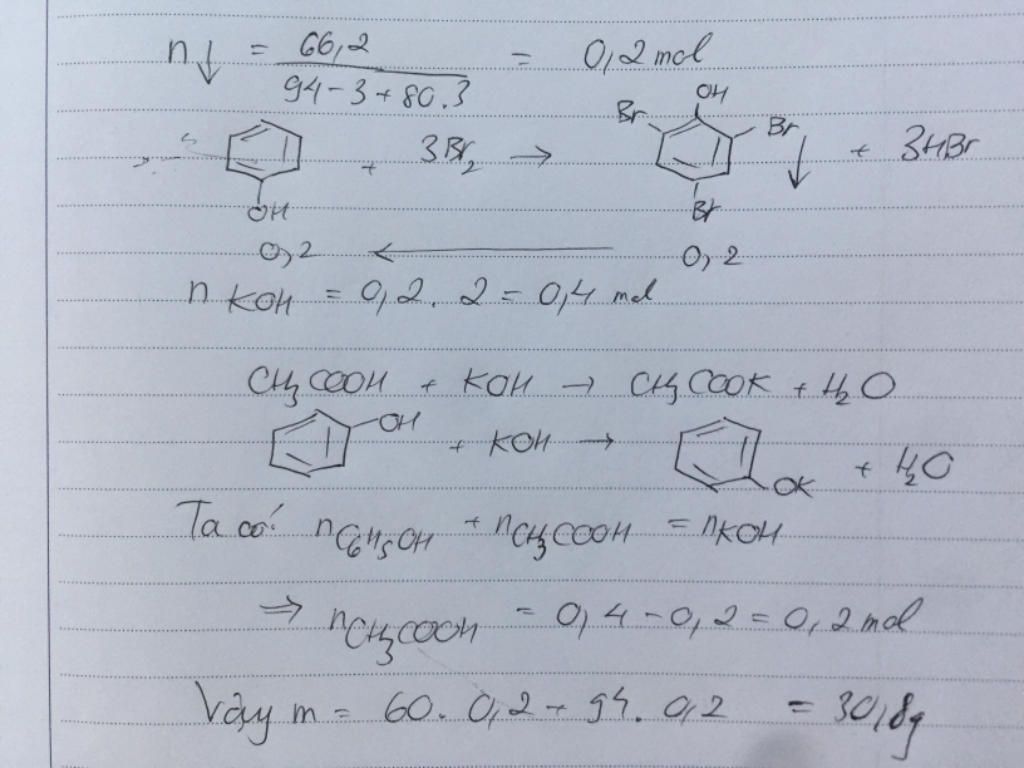 n↓ = 66,2 / 94-3+80.3 = 0,2 mol
OH + 3Br2 → Br OH Br Br ↓ + 3HBr
0,2 ← 0,2
n KOH = 0,2. 2 = 0,4 mol
CH3COOH + KOH → CH3COOK + H2O
OH + KOH → OK + H2O
Ta có: nC6H5OH + nCH3COOH = nKOH
⇒ nCH3COOH = 0,4-0,2 = 0,2 mol
Vậy m = 60. 0,2 + 94. 0,2 = 30,8g